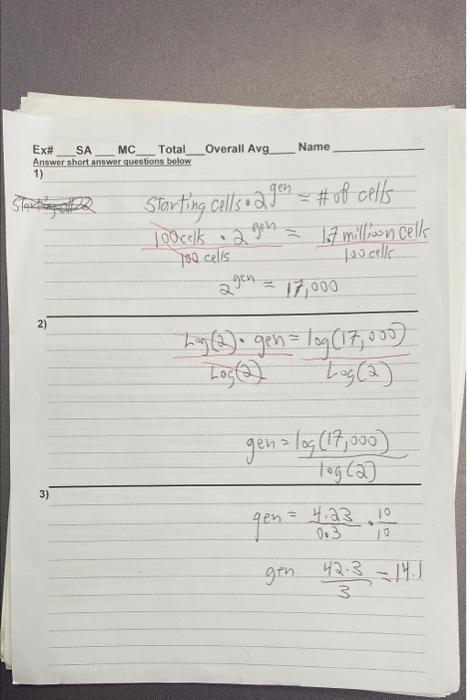 Ex# ___SA ___MC___Total___Overall Avg____ Name ____________
Answer short answer questions below
1)
Starting cells · 2^gen = # of cells
100cells · 2^gen = 1.7 million cells
100 cells 100 cells
2^gen = 17,000
2)
Log(2) · gen = log(17,000)
Log(2) Log(2)
gen = log(17,000)
log(2)
3)
gen = 4.23 · 10
0.3 10
gen 42.3 = 14.1
3